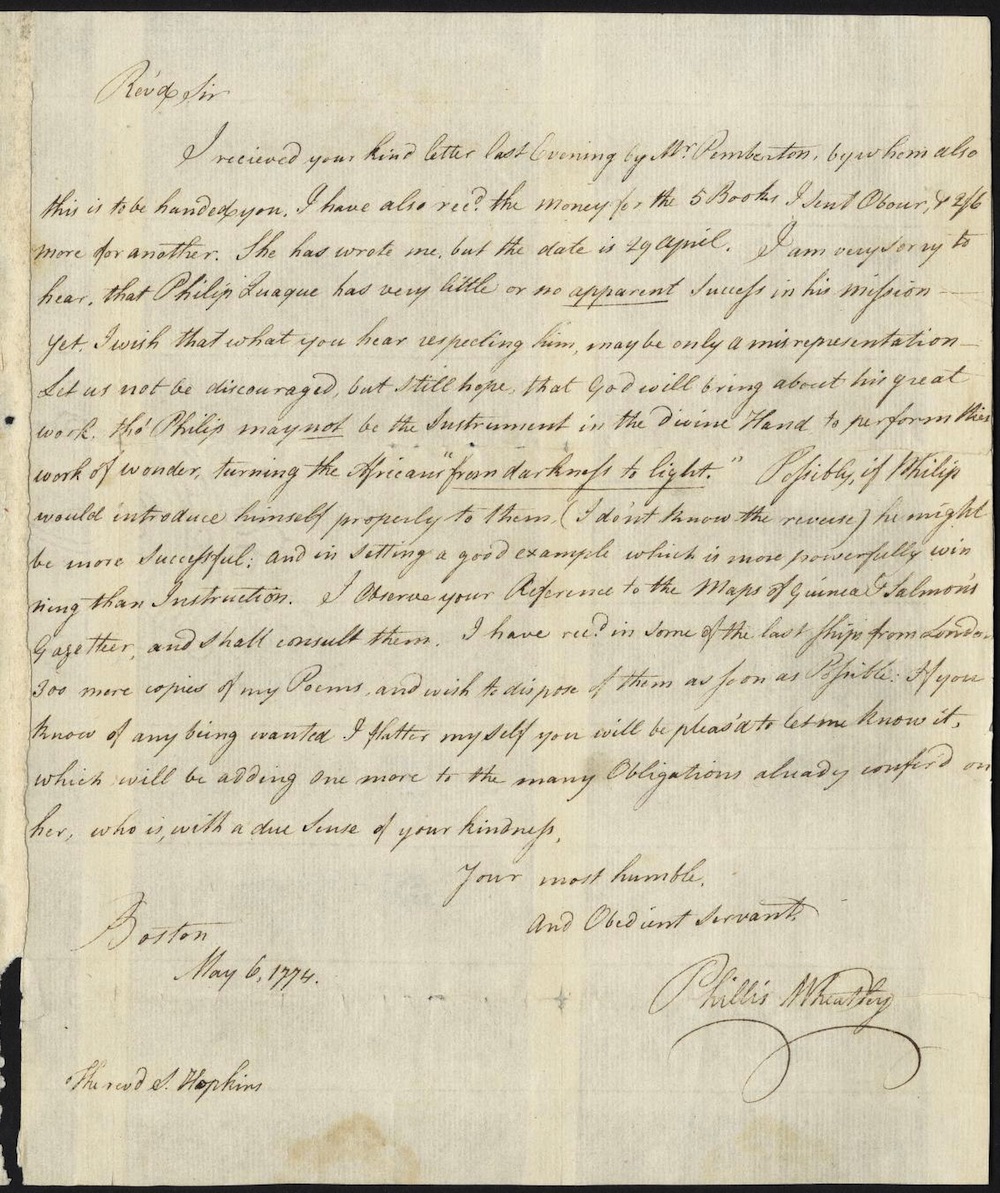 Rev'd Sir
I recieved your kind letter last Evening by Mr. Pemberton, by whom also
this is to be handed you. I have also rec'd. the money for the 5 Books I sent Obour, & 2/6
more for another. She has wrote me, but the date is 29 April. I am very sorry to
hear, that Philip Quaque has very little or no apparent Success in his mission—
Yet, I wish that what you hear respecting him, may be only a misrepresentation—
Let us not be discouraged, but still hope, that God will bring about his great
work, tho' Philip may not be the Instrument in the Divine Hand to perform this
work of wonder, turning the Africans "from darkness to light." Possibly, if Philip
would introduce himself properly to them, (I don't know the reverse) he might
be more Successful; and in setting a good example which is more powerfully win
ning than Instruction. I Observe your Reference to the Maps of Guinea & Salmon's
Gazetteer, and shall consult them. I have rec'd in some of the last ships from London
300 more copies of my Poems, and wish to dispose of them as soon as Possible: If you
know of any being wanted I flatter myself you will be pleas'd to let me know it,
which will be adding one more to the many Obligations already confer'd on
her, who is, with a due Sense of your kindness,
Your most humble,
And Obedient servant,
Boston
May 6, 1774.
Phillis Wheatley
The rev'd S. Hopkins